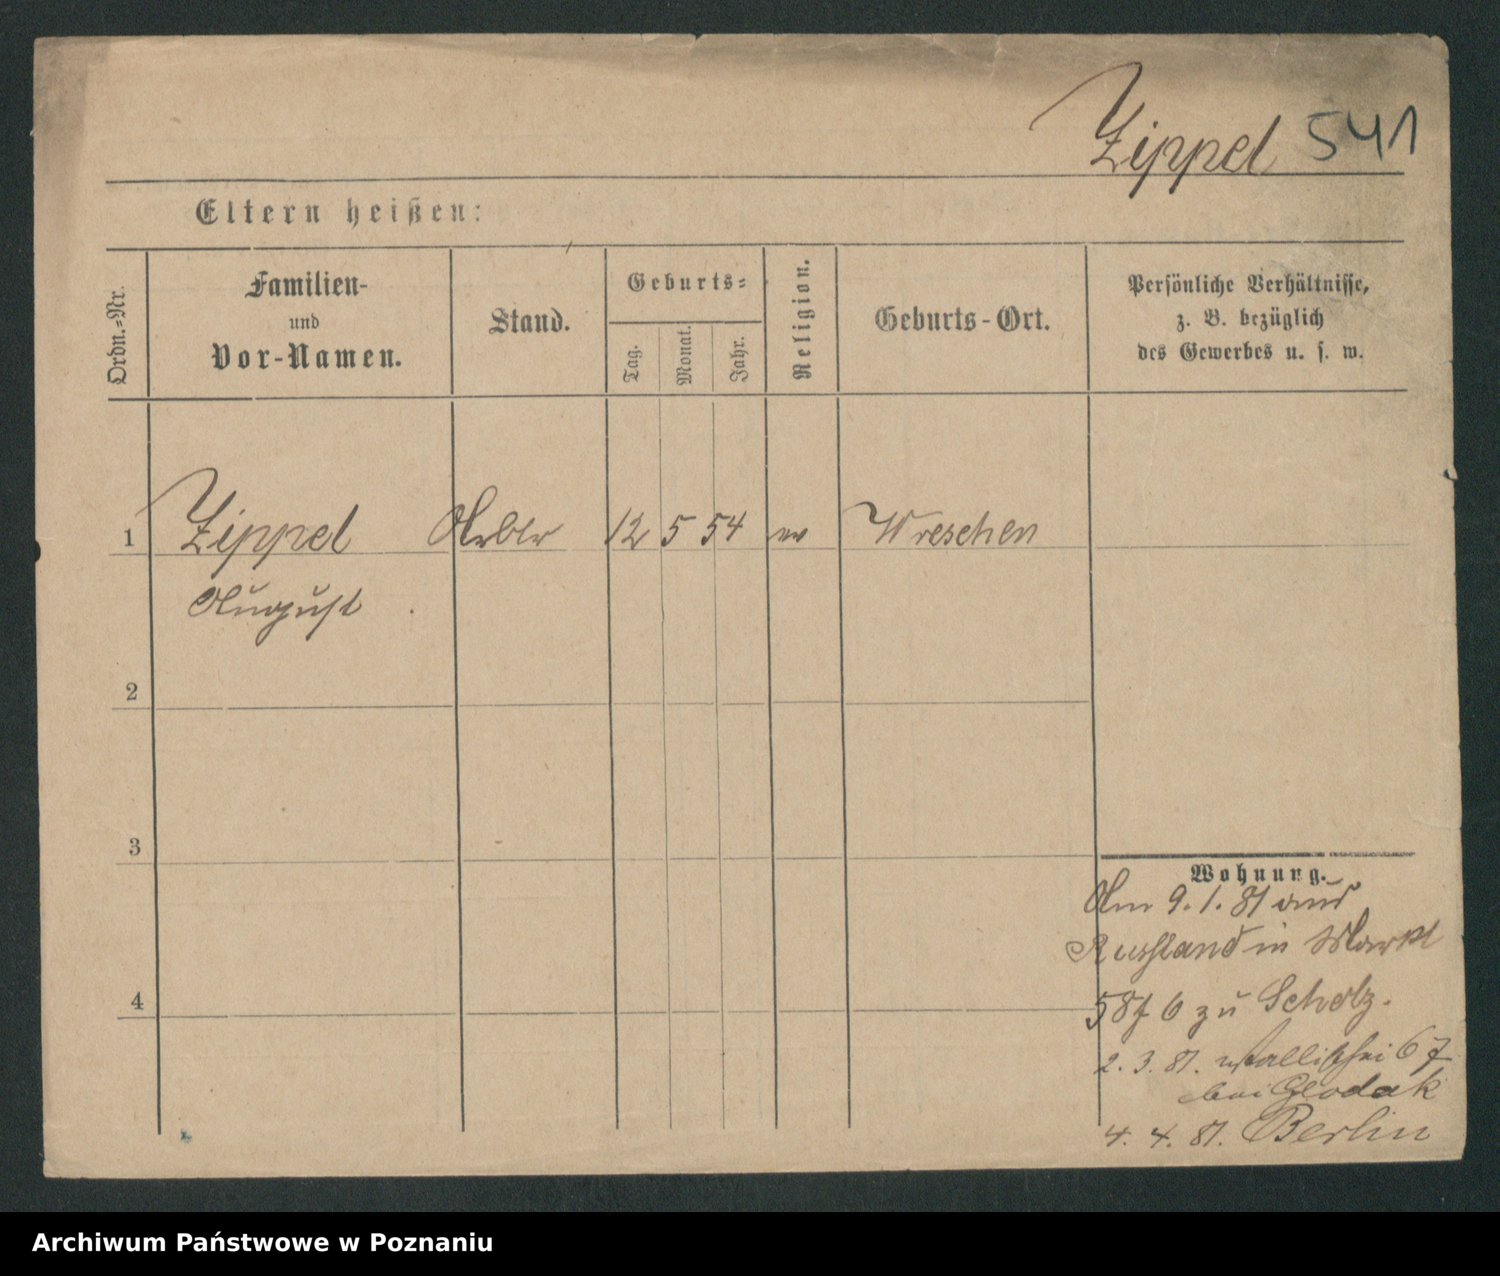 Zippel 541
Eltern heißen:
Ordn.=Nr.
Familien-
und
Vor-Namen.
Stand.
Geburts=
Tag.
Monat.
Jahr.
Religion.
Geburts-Ort.
Persönliche Verhältnisse,
z. B. bezüglich
des Gewerbes u. s. w.
1 Zippel Arbtr 12 5 54 ev Wreschen
August
2
3
4
Wohnung.
Am 9. 1. 81 aus
Russland in Markt
zu Scholz.
2. 3. 81. Wallischei 67
bei Glodak
4. 4. 81. Berlin
Archiwum Państwowe w Poznaniu